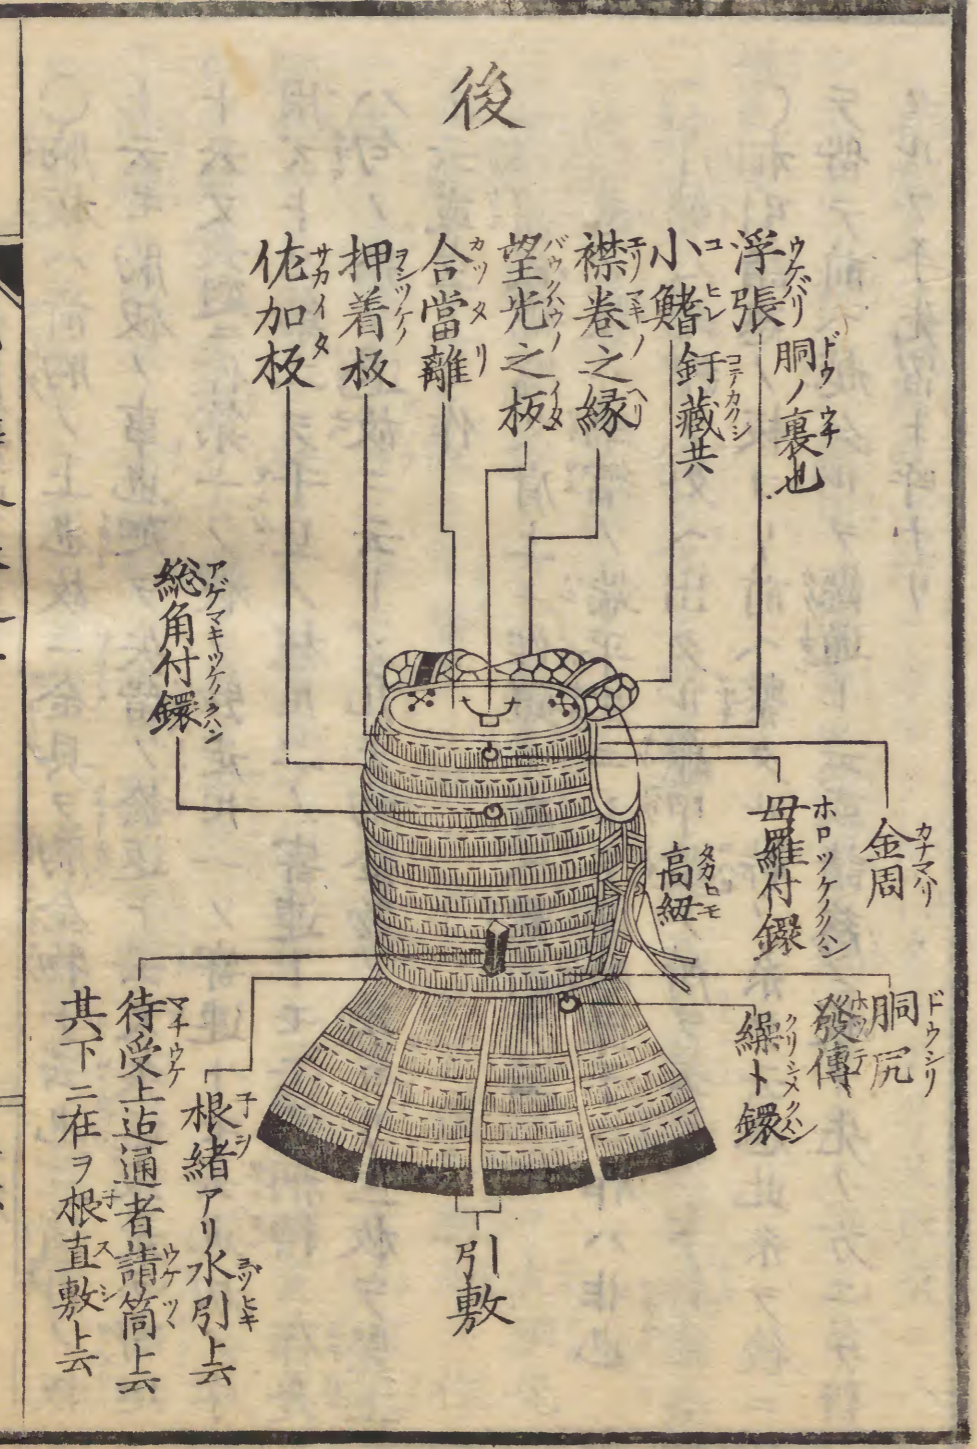 後
浮張 ウケバリ
胴ノ裏也 ドウ ウチ
小鰭 コヒレ
釪藏共 コテカクシ
襟卷之縁 エリマキノヘリ
望光之板 バウクハウノイタ
合當離 カツタリ
押着板 ヲシツケノ
佐加板 サカイタ
総角付鐶 アゲマキツケノクハン
金周 カナマハリ
母羅付鐶 ホロツケノクハン
高紐 タカヒモ
胴尻 ドウシリ
發傳 ホツテ
繰卜鐶 クリシメノクハン
根緒アリ水引ト云
待受上迠通者請筒ト云
其下ニ在ヲ根直敷ト云
引敷